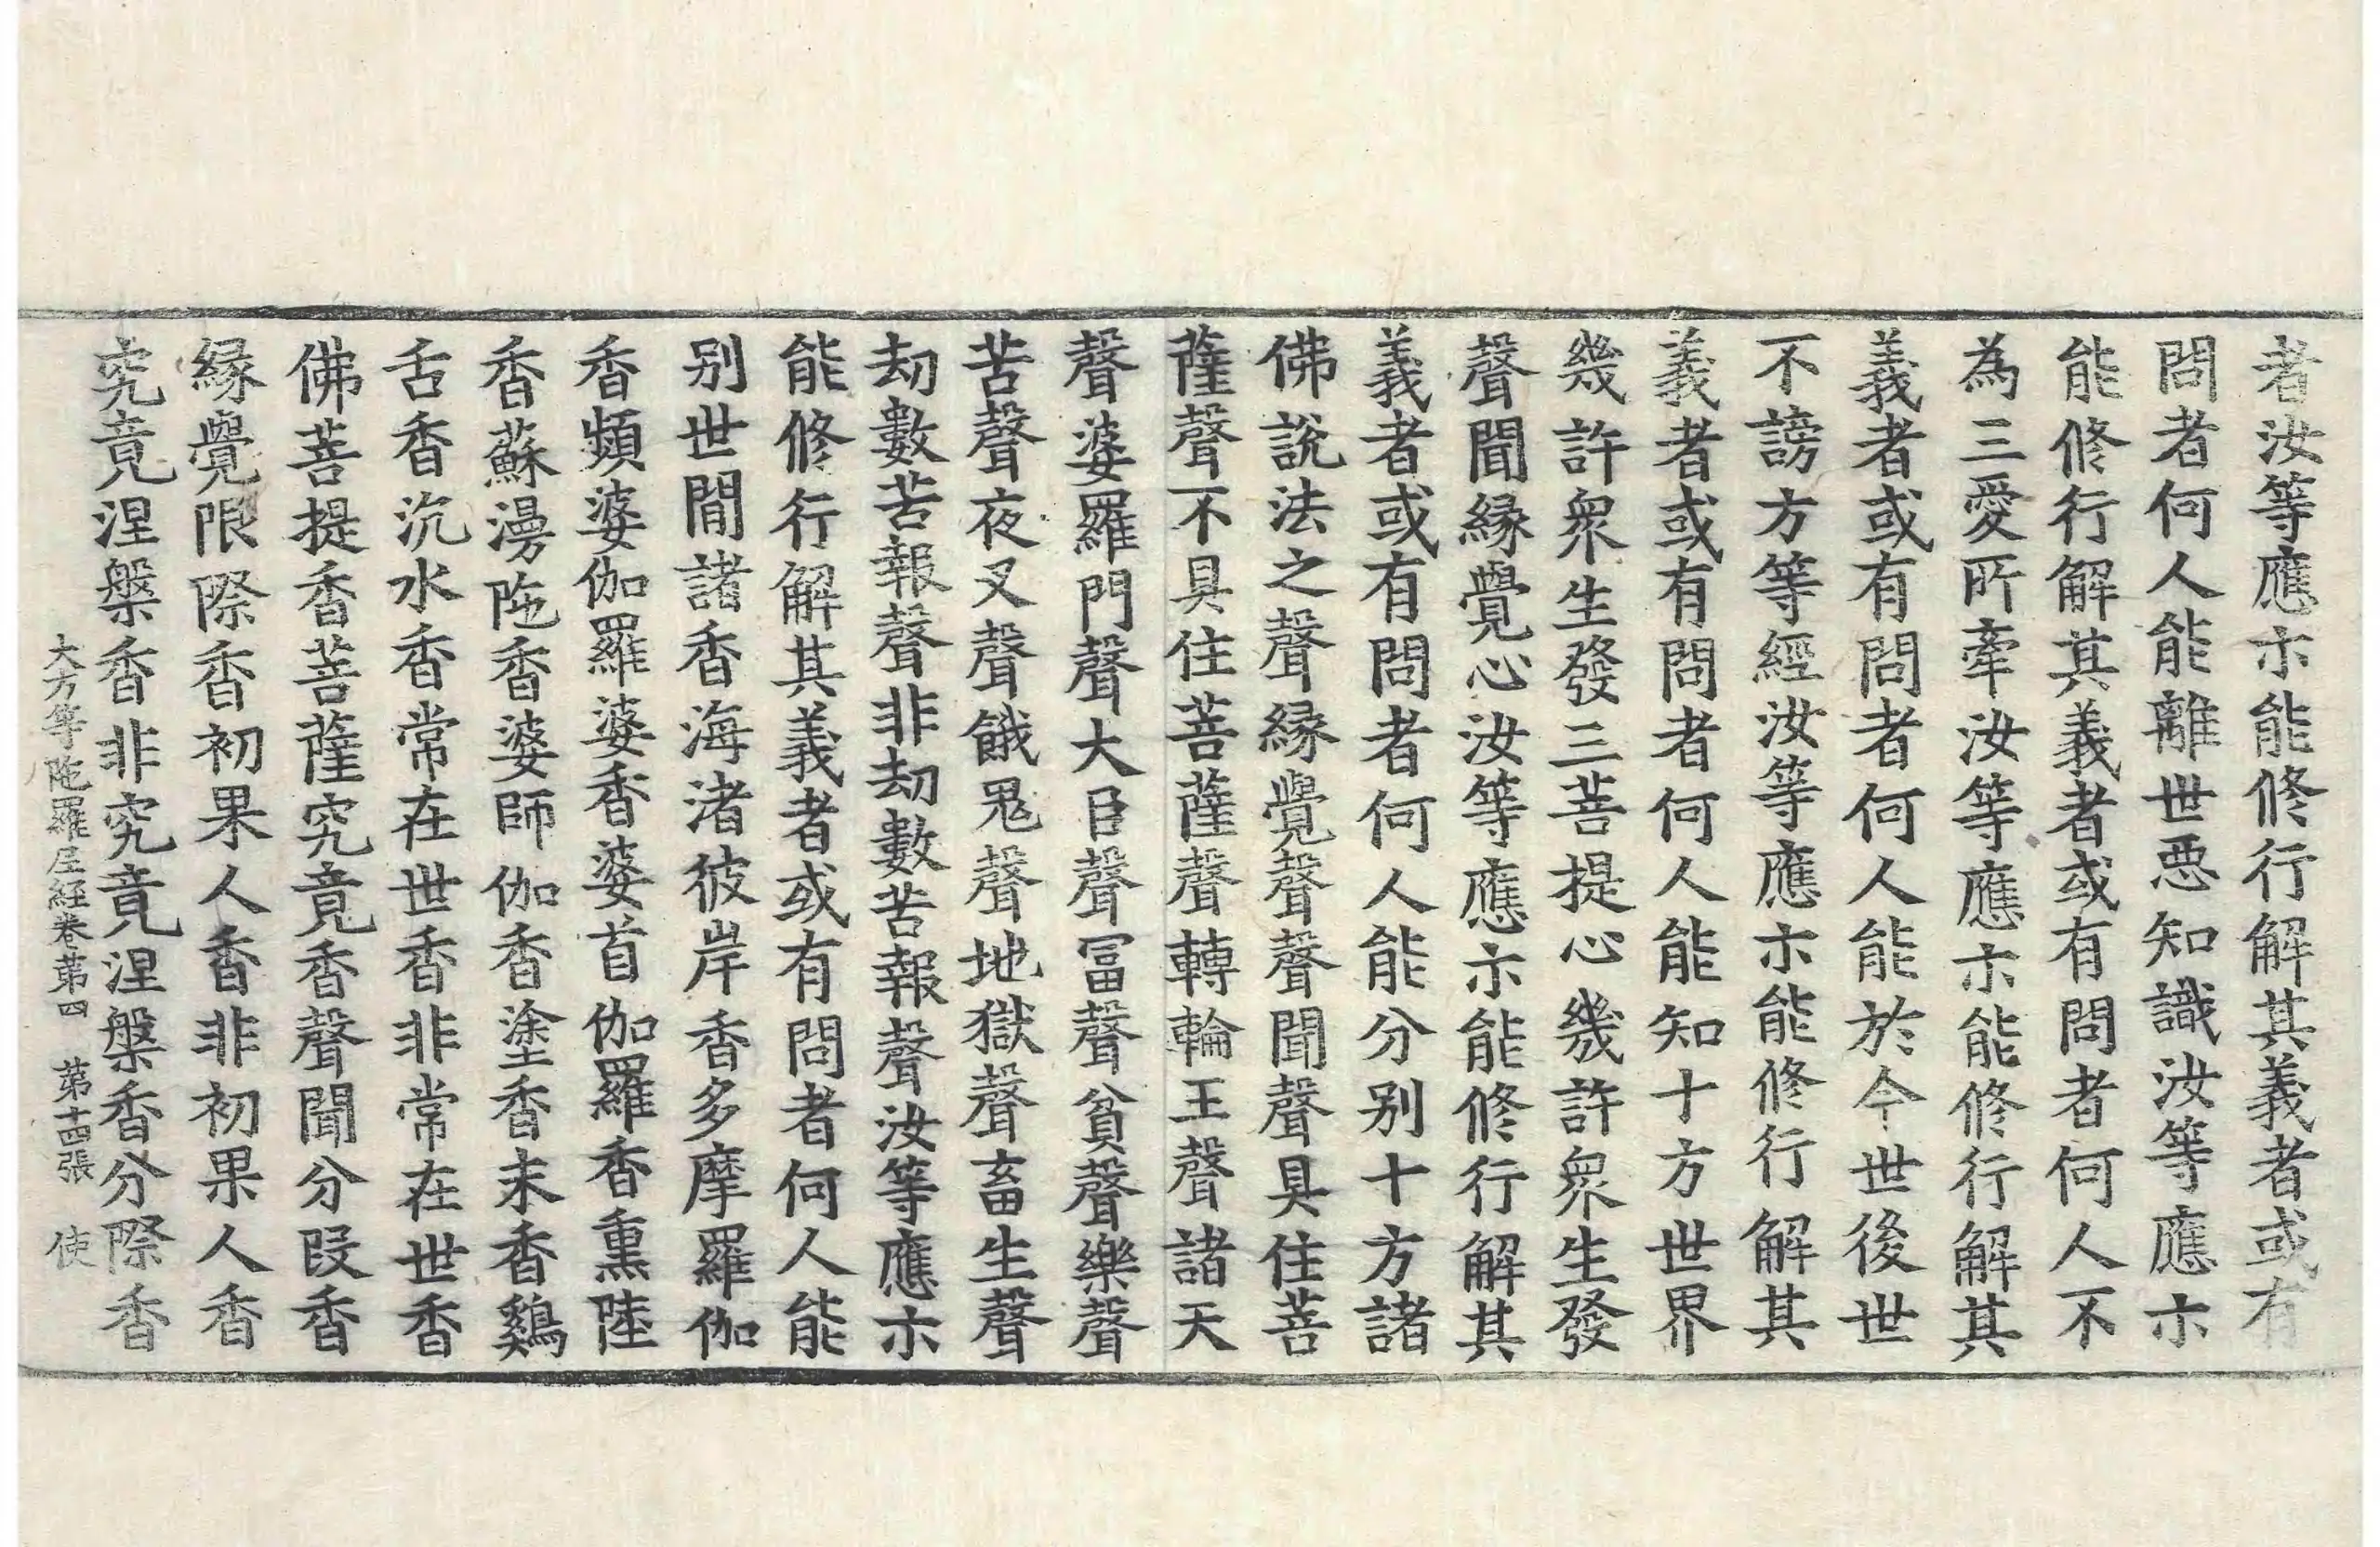 者汝等應亦能修行解其義者或有
問者何人能離世惡知識汝等應亦
能修行解其義者或有問者何人不
為三愛所牽汝等應亦能修行解其
義者或有問者何人能於今世後世
不謗方等經汝等應亦能修行解其
義者或有問者何人能知十方世界
幾許眾生發三菩提心幾許眾生發
聲聞緣覺心汝等應亦能修行解其
義者或有問者何人能分别十方諸
佛說法之聲緣覺聲聲聞聲具住菩
薩聲不具住菩薩聲轉輪王聲諸天
聲婆羅門聲大臣聲冨聲貧聲樂聲
苦聲夜叉聲餓鬼聲地獄聲畜生聲
劫數苦報聲非劫數苦報聲汝等應亦
能修行解其義者或有問者何人能
别世間諸香海渚彼岸香多摩羅伽
香頻婆伽羅婆香婆首伽羅香熏陸
香蘇漫陁香婆師伽香塗香末香鷄
舌香沉水香常在世香非常在世香
佛菩提香菩薩究竟香聲聞分段香
緣覺限際香初果人香非初果人香
究竟涅槃香非究竟涅槃香分際香
大方等陁羅尼経卷第四 第十四張 使